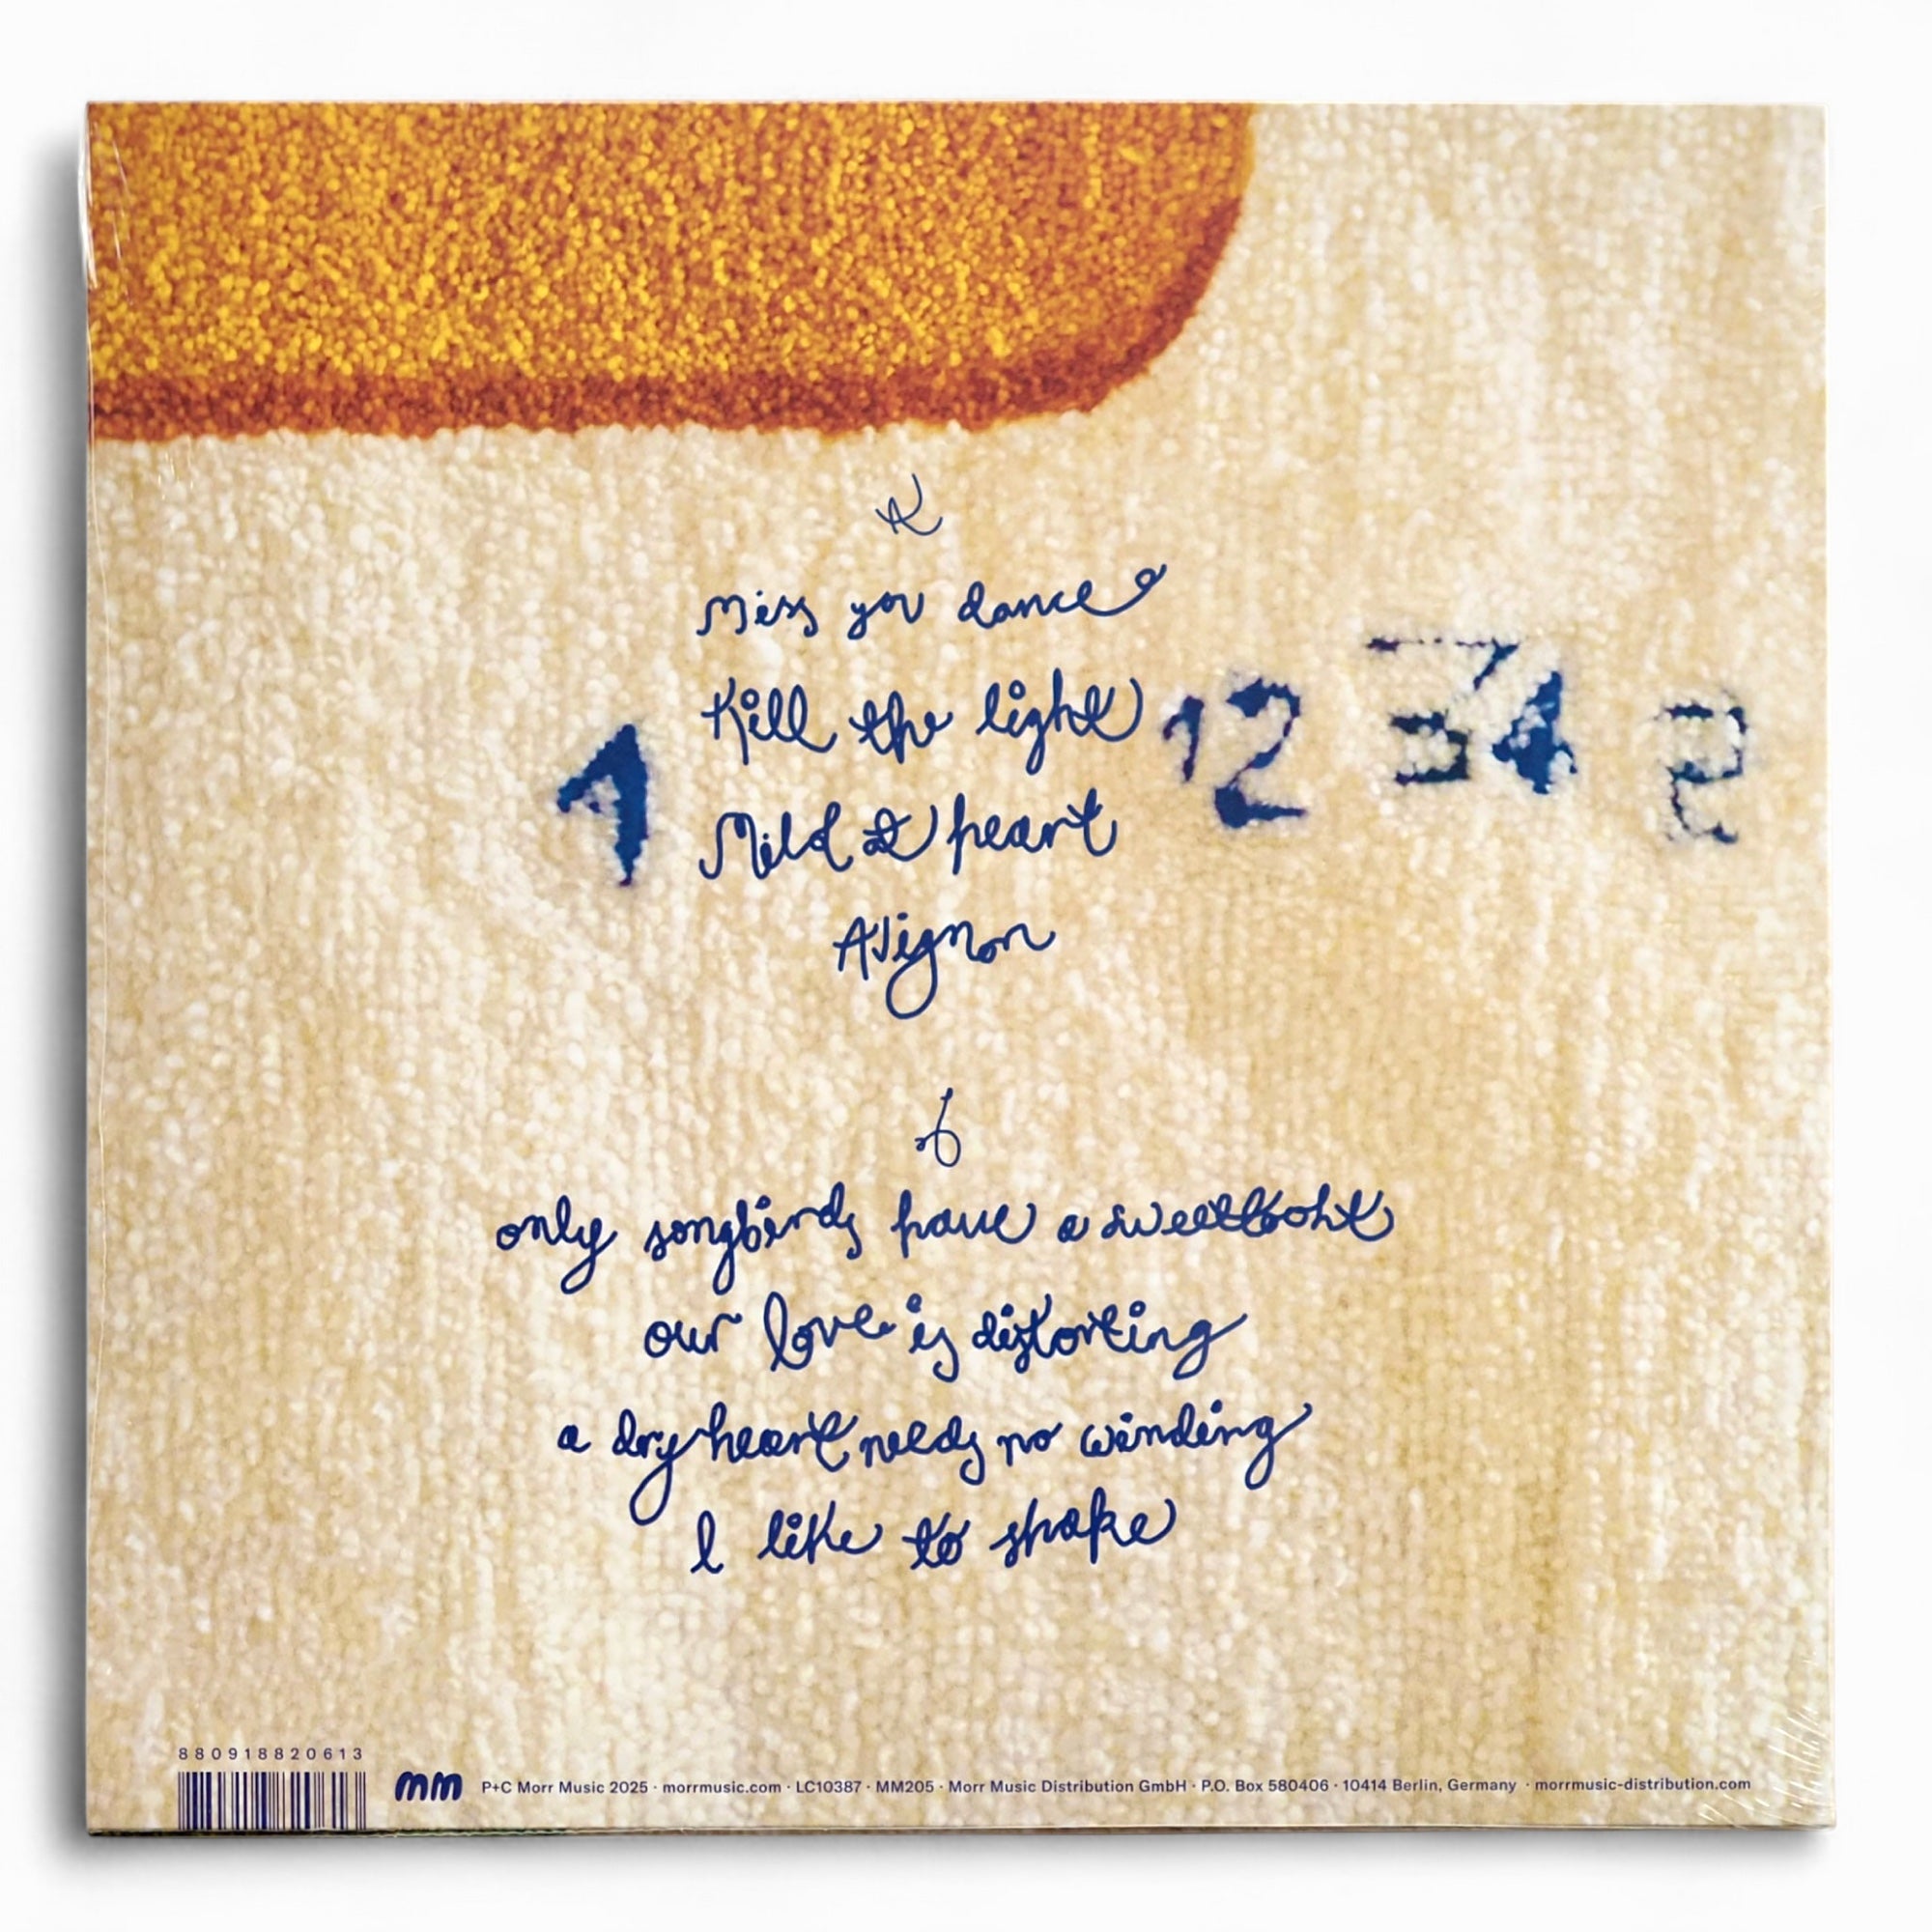 A
Miss you dance
Kill the light
1
12
34
2
Mild at heart
Avignon
b
only songbirds have a sweettooht
our love is distorting
a dry heart needs no winding
I like to shake
880918820613
mm P+C Morr Music 2025 · morrmusic.com · LC10387 · MM205 · Morr Music Distribution GmbH · P.O. Box 580406 · 10414 Berlin, Germany · morrmusic-distribution.com